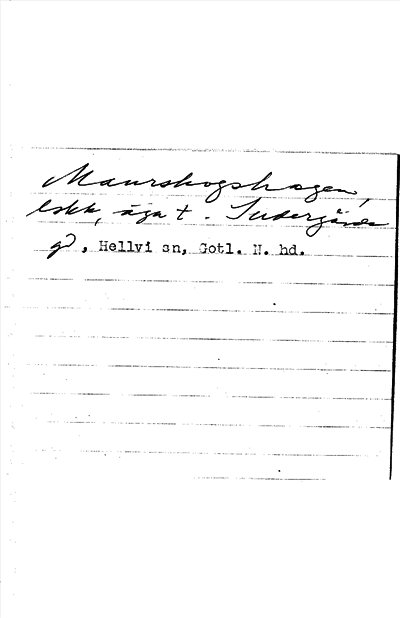 Maurshogshagen,
lskk, äga t. Sudergårda
gd, Hellvi sn, Gotl. N. hd.